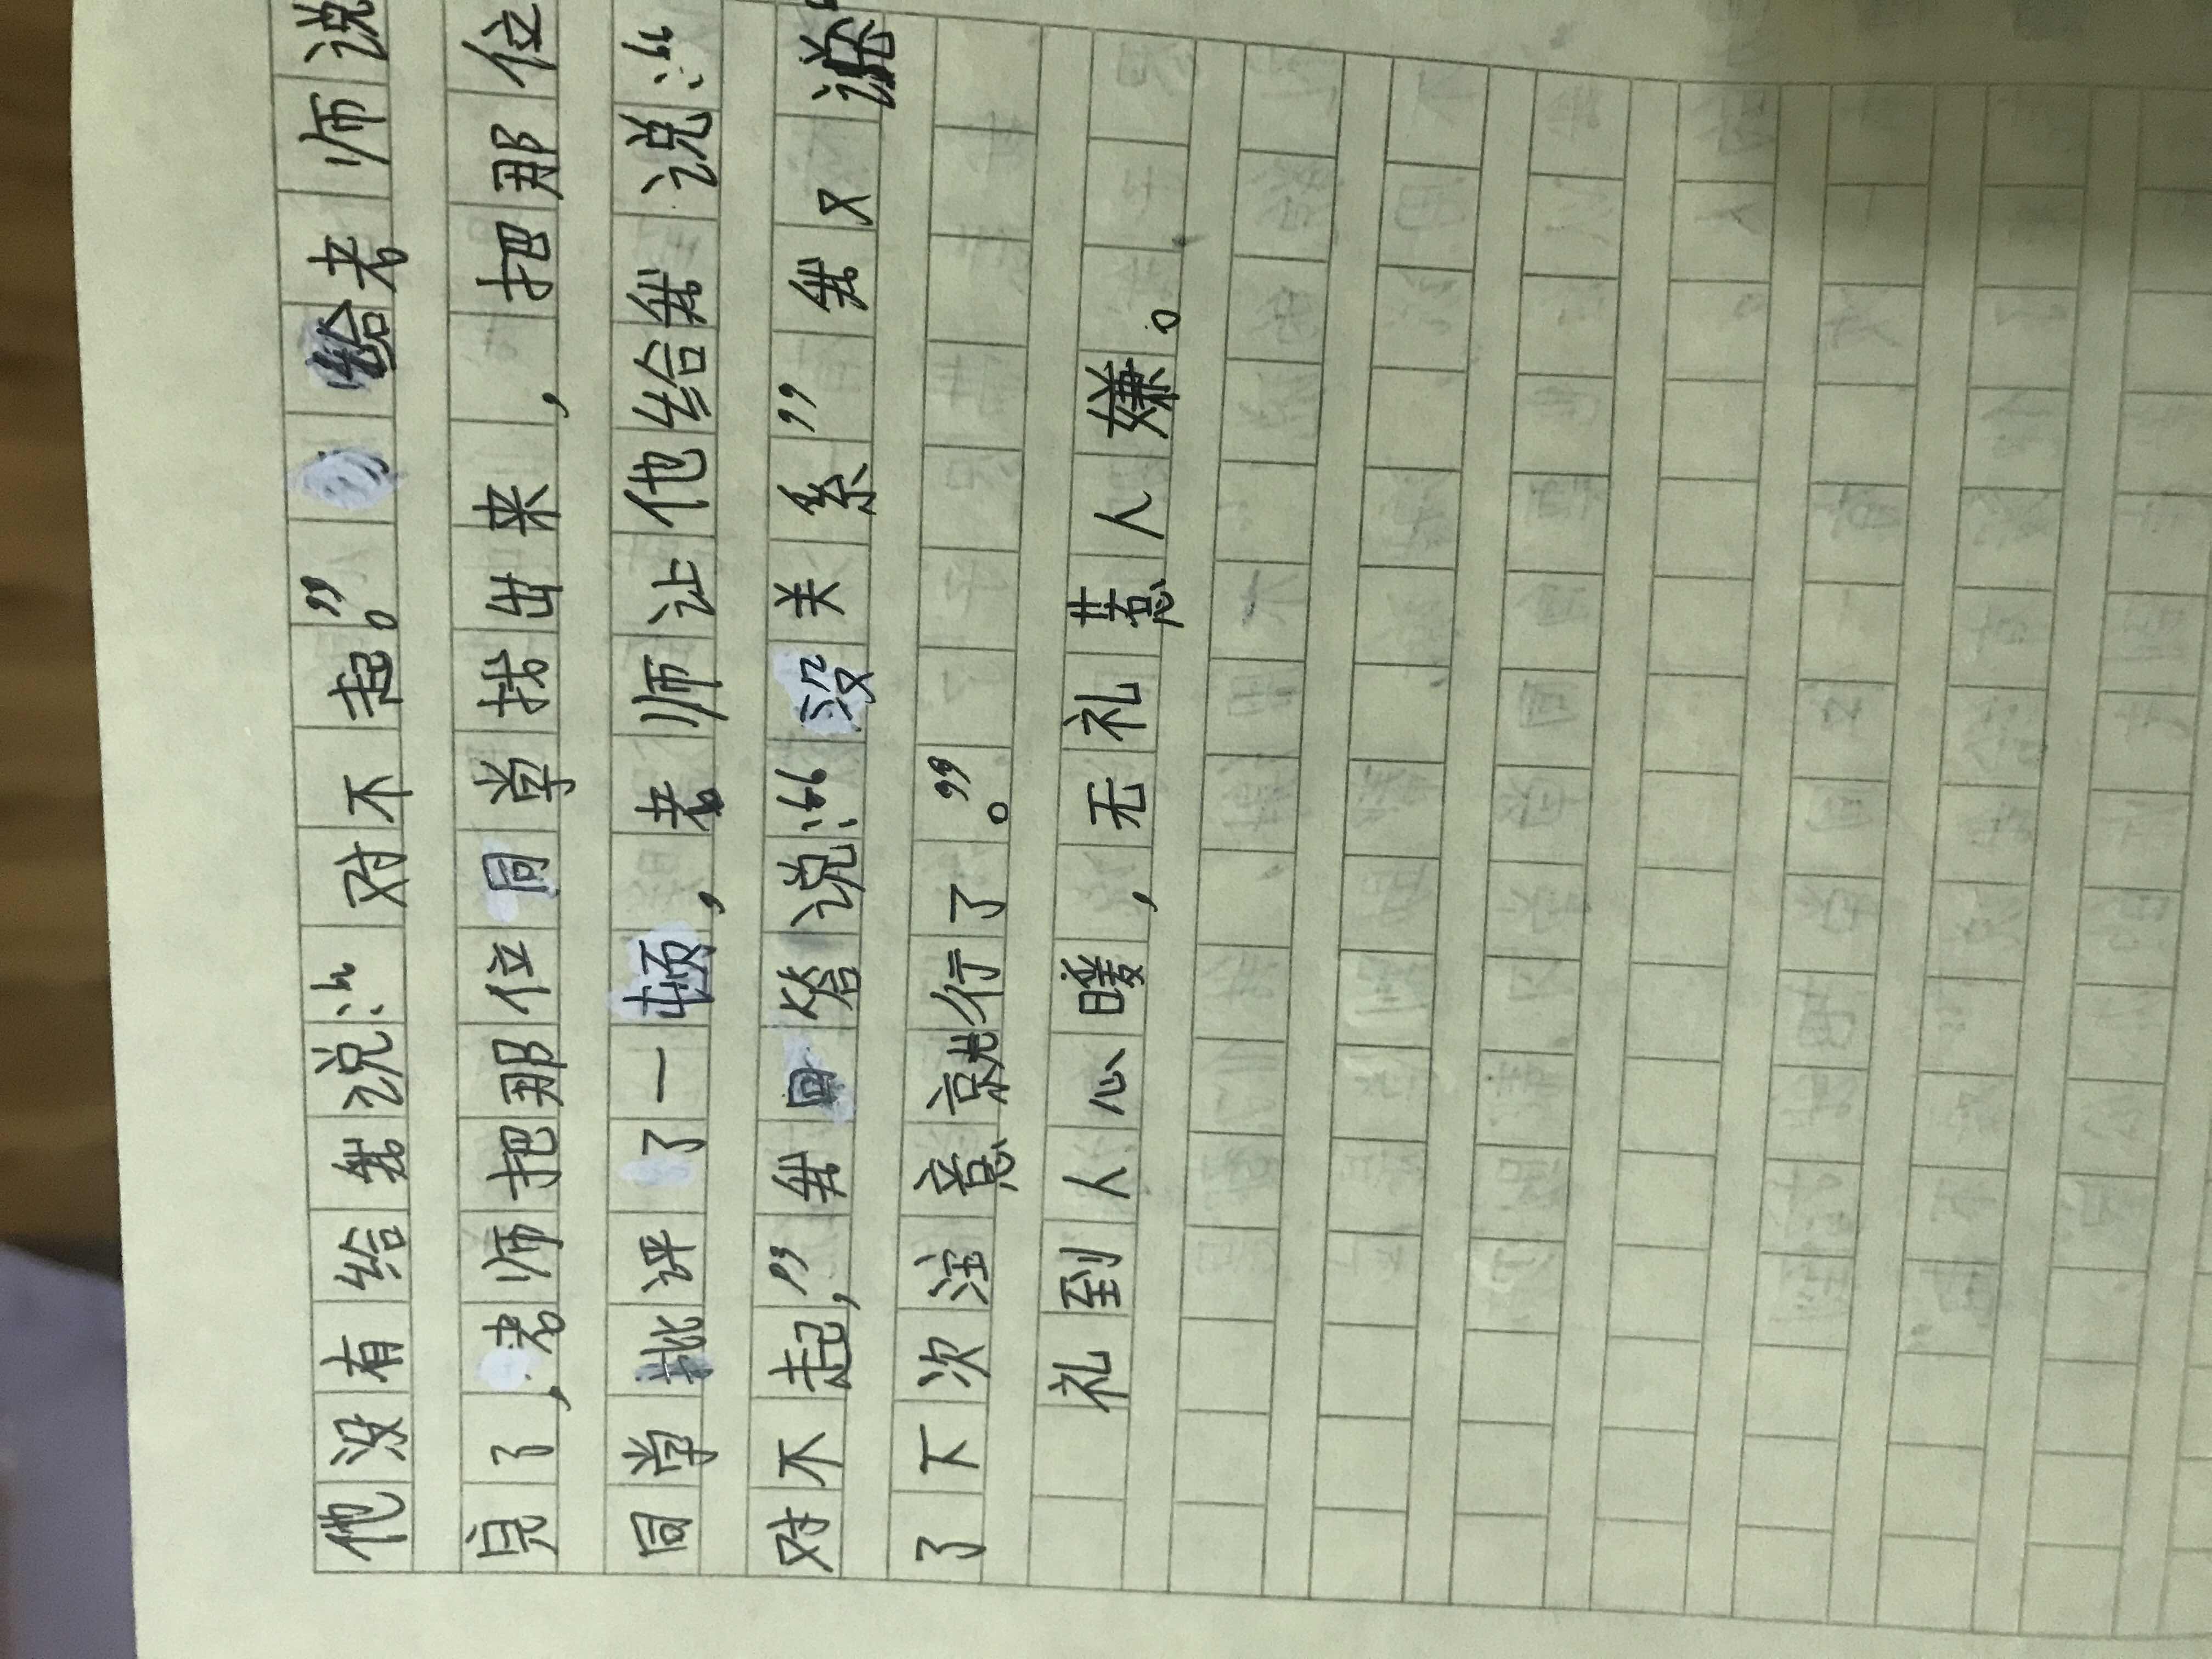 他没有给我说：“对不起。”给老师说
完了，老师把那位同学找出来，把那位
同学批评了一顿，老师让他给我说：“
对不起，”我回答说：“没关系”我又说“
了下次注意就行了。”
礼到人心暖，无礼惹人嫌。